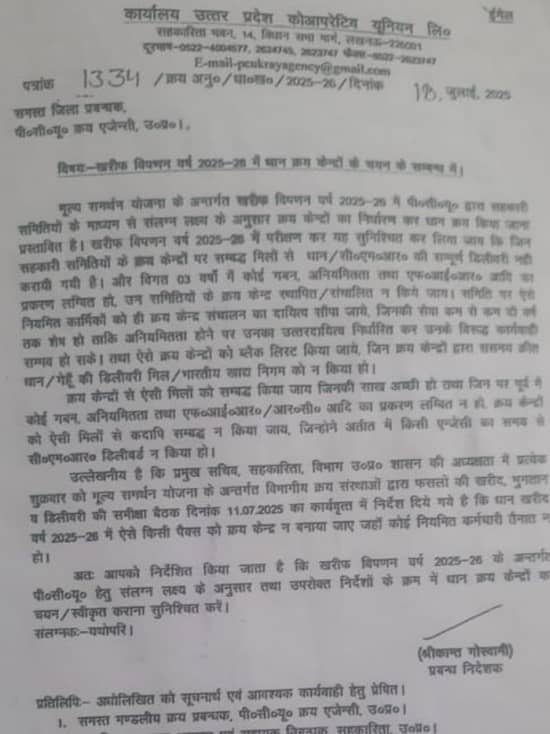 ईमेल
कार्यालय उत्तर प्रदेश कोआपरेटिव यूनियन लि०
सहकारिता भवन, 14, विधान सभा मार्ग, लखनऊ-226001
दूरभाष-0522-4004577, 2624745, 2623747 फैक्स-0522-2623747
E-mail-pcukrayagency@gmail.com
पत्रांक 1334 /क्रय अनु०/धा०ख०/2025-26/दिनांक 18, जुलाई, 2025
समस्त जिला प्रबन्धक,
पी०सी०यू० क्रय एजेन्सी, उ०प्र०।
विषयः-खरीफ विपणन वर्ष 2025-26 में धान क्रय केन्द्रों के चयन के सम्बन्ध में।
मूल्य समर्थन योजना के अन्तर्गत खरीफ विपणन वर्ष 2025-26 में पी०सी०यू० द्वारा सहकारी
समितियों के माध्यम से संलग्न लक्ष्य के अनुसार क्रय केन्द्रों का निर्धारण कर धान क्रय किया जाना
प्रस्तावित है। खरीफ विपणन वर्ष 2025-26 में परीक्षण कर यह सुनिश्चित कर लिया जाय कि जिन
सहकारी समितियों के क्रय केन्द्रों पर सम्बद्ध मिलों से धान/सी०एम०आर० की सम्पूर्ण डिलीवरी नही
करायी गयी है। और विगत 03 वर्षों में कोई गबन, अनियमितता तथा एफ०आई०आर० आदि का
प्रकरण लम्बित हो, उन समितियों के क्रय केन्द्र स्थापित/संचालित न किये जाय। समिति पर ऐसे
नियमित कार्मिकों को ही क्रय केन्द्र संचालन का दायित्व सौपा जाये, जिनकी सेवा कम से कम दो वर्ष
तक शेष हो ताकि अनियमितता होने पर उनका उत्तरदायित्व निर्धारित कर उनके विरूद्ध कार्यवाही
सम्भव हो सके। तथा ऐसे क्रय केन्द्रों को ब्लैक लिस्ट किया जाये, जिन क्रय केन्द्रों द्वारा ससमय क्रीत
धान/गेहूँ की डिलीवरी मिल/भारतीय खाद्य निगम को न किया हो।
क्रय केन्द्रों से ऐसी मिलों को सम्बद्ध किया जाय जिनकी साख अच्छी हो तथा जिन पर पूर्व में
कोई गबन, अनियमितता तथा एफ०आई०आर०/आर०सी० आदि का प्रकरण लम्बित न हो. क्रय केन्द्रों
को ऐसी मिलों से कदापि सम्बद्ध न किया जाय, जिन्होने अतीत में किसी एजेन्सी का समय से
सी०एम०आर० डिलीवर्ड न किया हो।
उल्लेखनीय है कि प्रमुख सचिव, सहकारिता, विभाग उ०प्र० शासन की अध्यक्षता में प्रत्येक
शुक्रवार को मूल्य समर्थन योजना के अन्तर्गत विभागीय क्रय संस्थाओं द्वारा फसलो की खरीद, भुगतान
व डिलीवरी की समीक्षा बैठक दिनांक 11.07.2025 का कार्यवृत्त में निर्देश दिये गये है कि धान खरीद
वर्ष 2025-26 में ऐसे किसी पैक्स को क्रय केन्द्र न बनाया जाए जहाँ कोई नियमित कर्मचारी तैनात न
हो।
अतः आपको निर्देशित किया जाता है कि खरीफ विपणन वर्ष 2025-26 के अन्तर्गत
पी०सी०यू० हेतु संलग्न लक्ष्य के अनुसार तथा उपरोक्त निर्देशों के क्रम में धान क्रय केन्द्रों का
चयन/स्वीकृत कराना सुनिश्चित करें।
संलग्नकः-यथोपरि।
(श्रीकान्त गोस्वामी)
प्रबन्ध निदेशक
प्रतिलिपिः- अधोलिखित को सूचनार्थ एवं आवश्यक कार्यवाही हेतु प्रेषित।
1. समस्त मण्डलीय क्रय प्रबन्धक, पी०सी०यू० क्रय एजेन्सी, उ०प्र०।
सहकारिता, उ०प्र०।